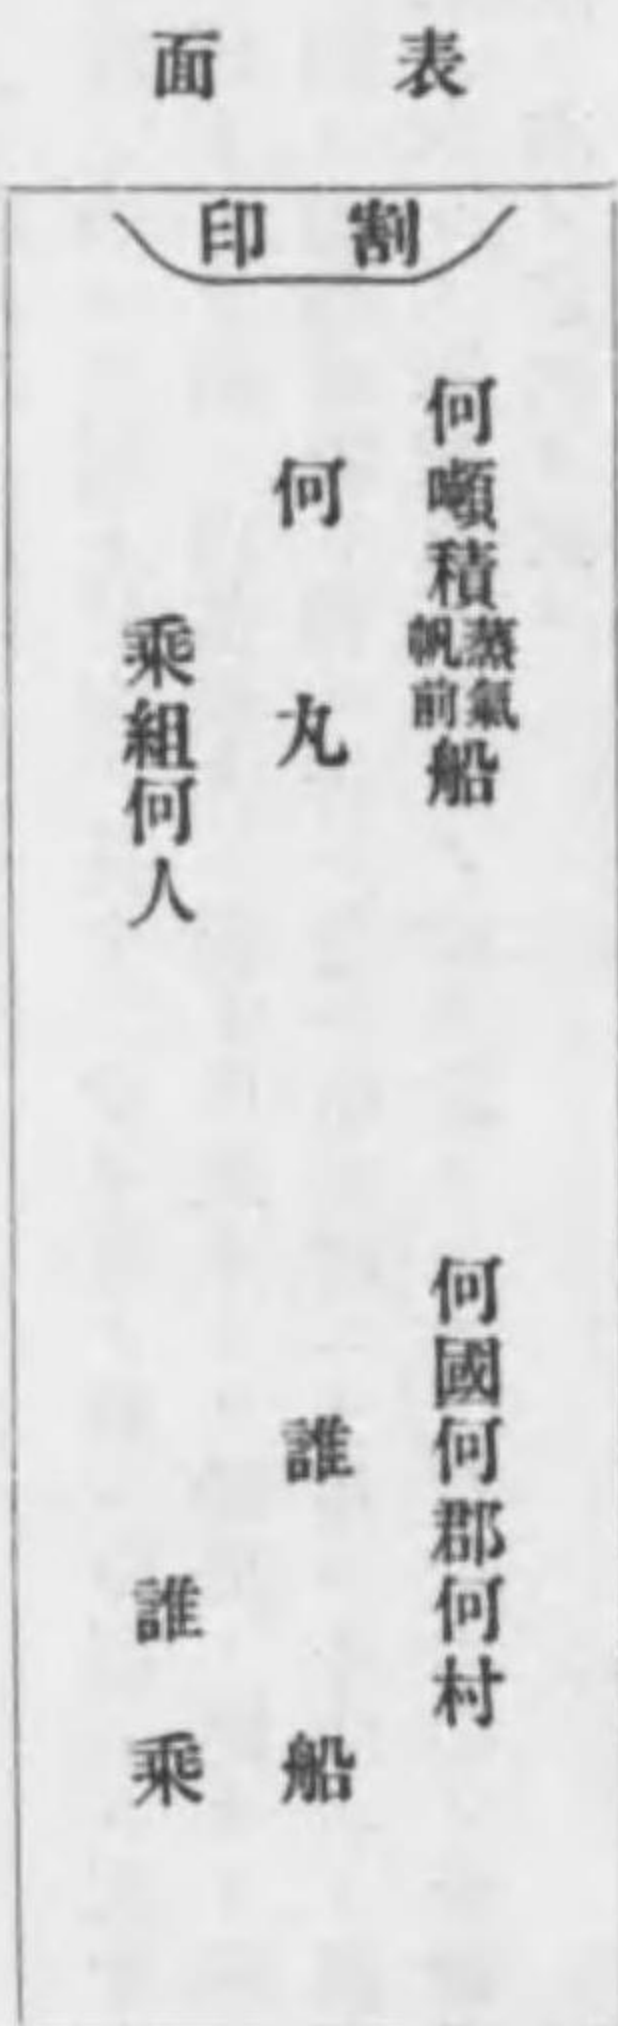 表面
割印
何噸積蒸氣帆前船
何國何郡何村
何丸
誰船
乘組何人
誰乘